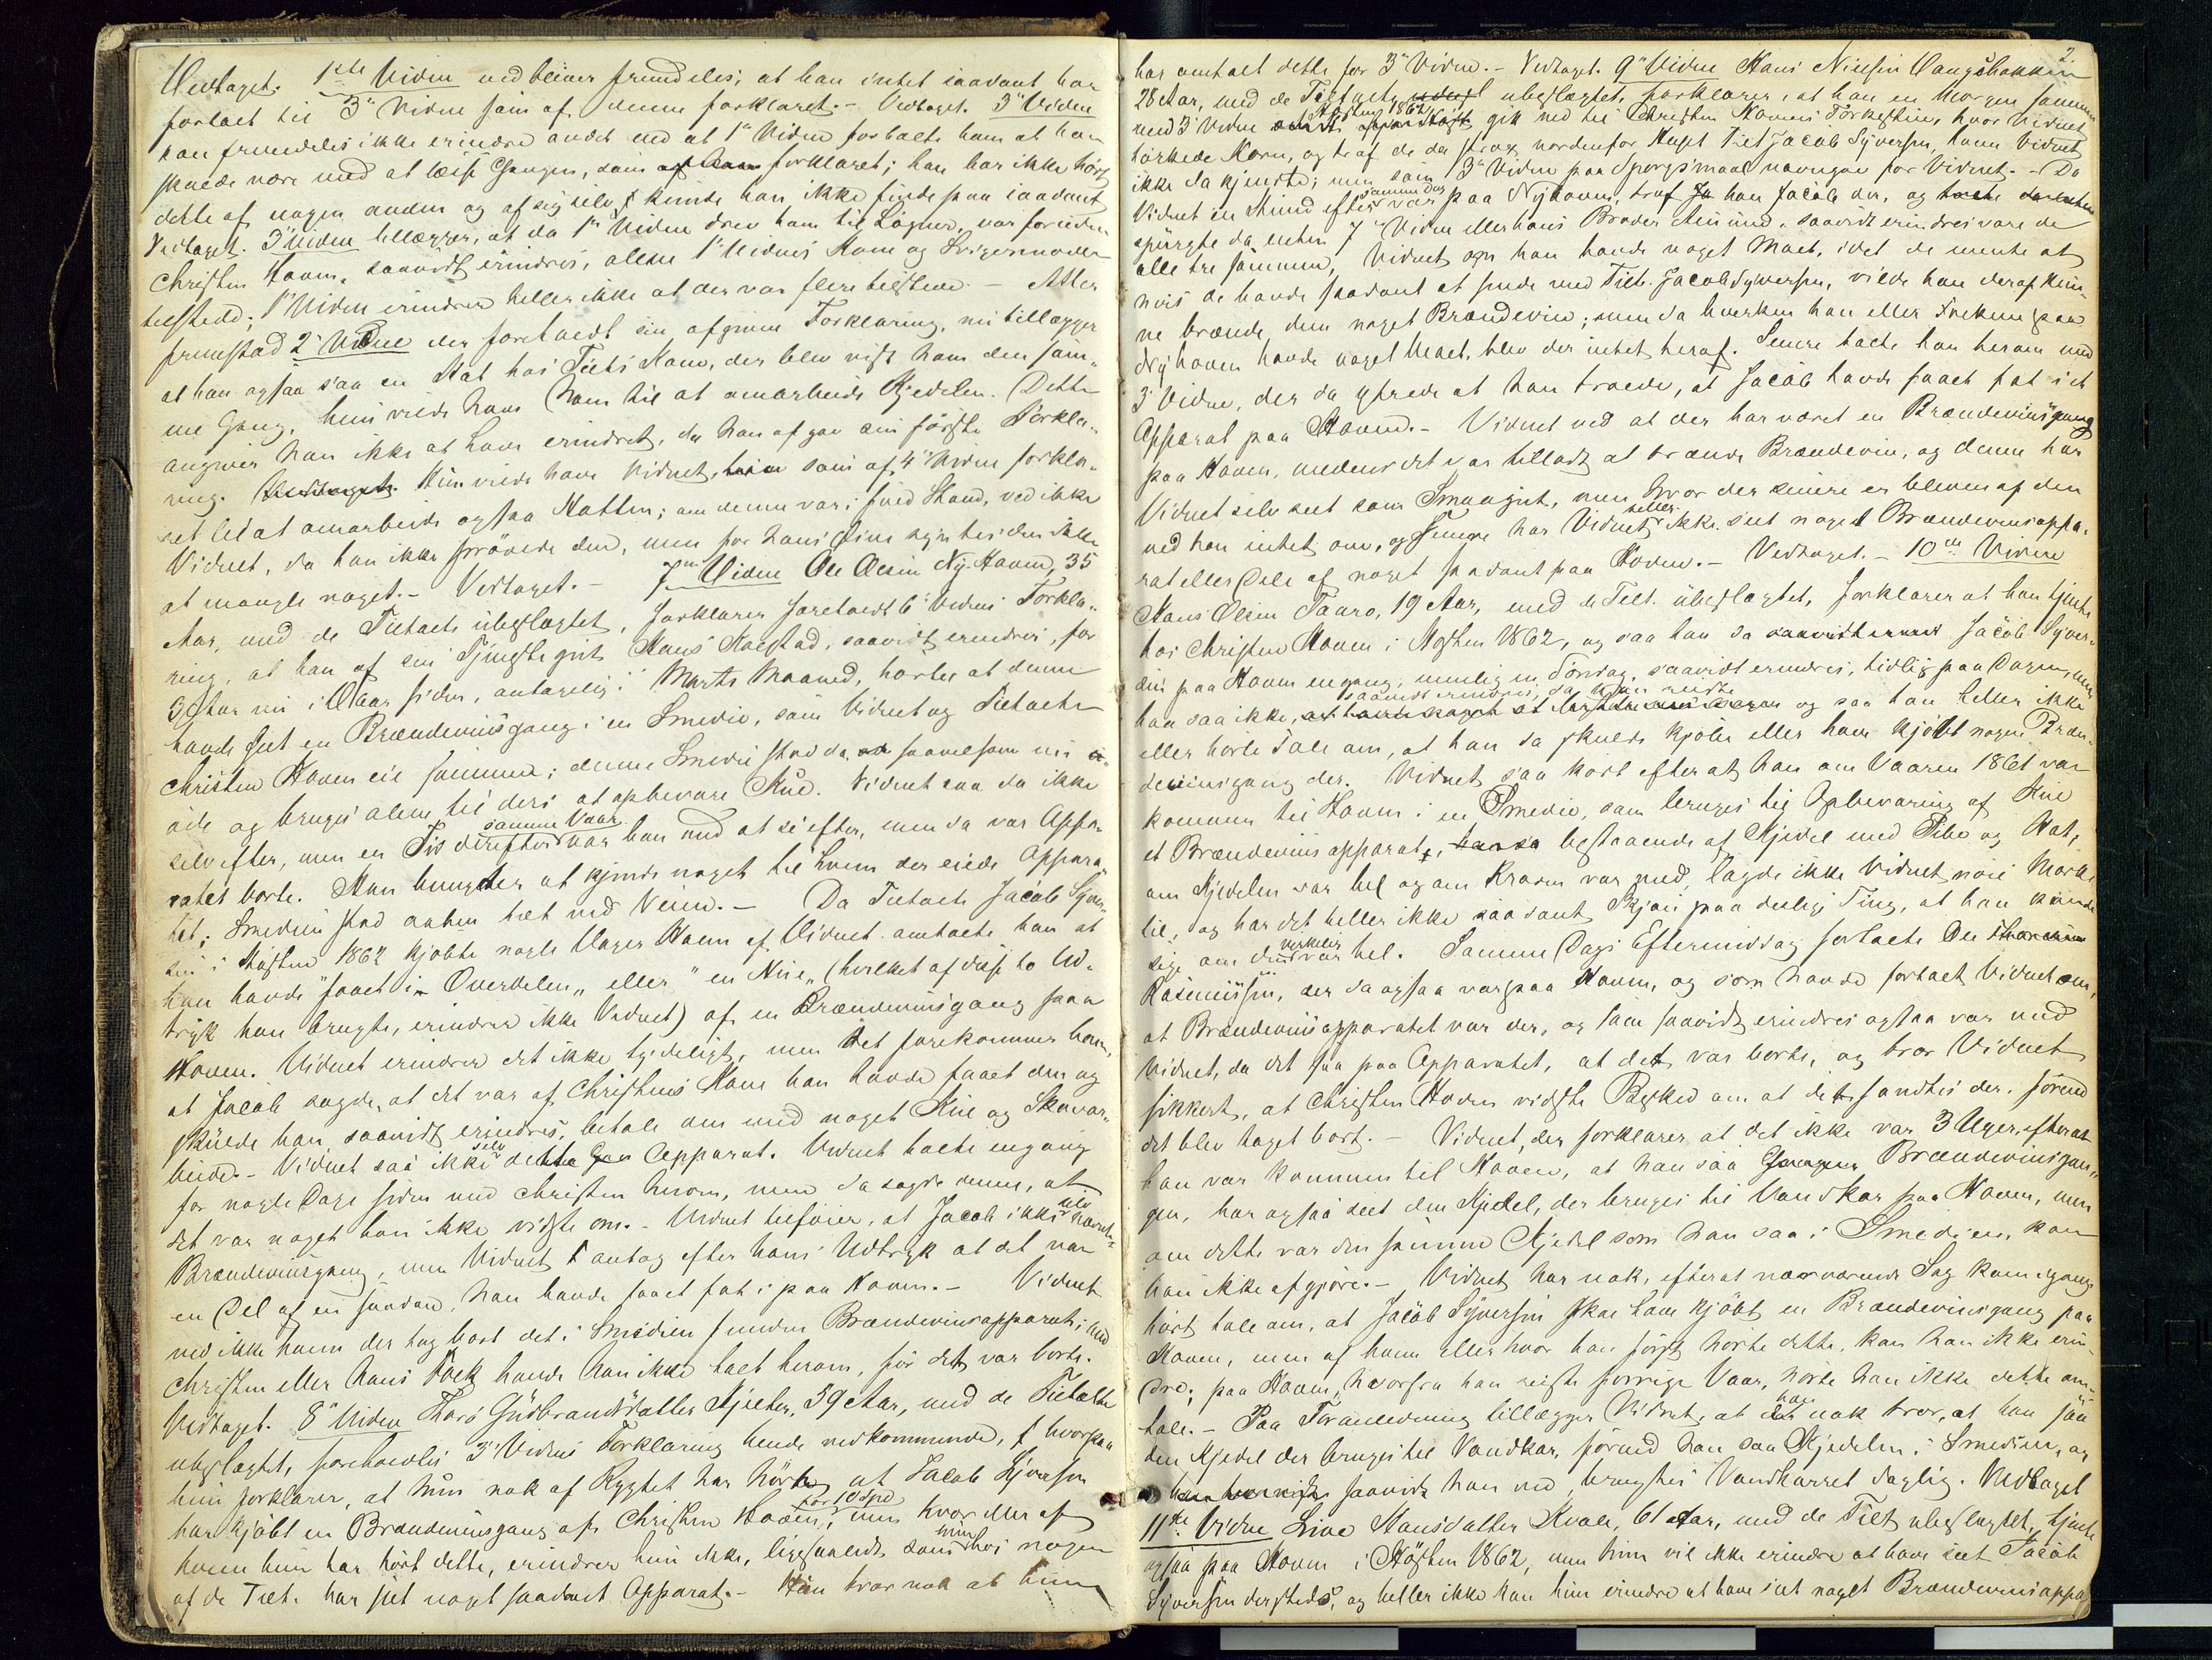 Vedtaget. 1ste Vidne vedbliver fremdeles, at han intet saadant har
fortalt til 3de Vidne som af denne forklaret. - Vedtaget. 3de Vidne
kan fremdeles ikke erindre andet end at 1ste Vidne fortalte ham at han
skulde være med at læsse Gangen, som af ham forklaret; han har ikke hørt
dette af nogen anden og af sig selv kunde han ikke finde paa saadant
Vedtaget. 3de Vidne tillægger, at da 1ste Vidne drev ham til Løgner, var foruden
Christen Hoven, saavidt erindres, alene 1ste Vidnes Kone og Svigermoder
tilstede; 1ste Vidne erindrer heller ikke at der var flere tilstede. - Atter
fremstod 2det Vidne der foreholdt sin afgivne Forklaring, nu tillægger
at han ogsaa saa en Hat hos Tiltes Kone, der blev vist ham den sam-
me Gang, hun vilde have ham til at omarbeide Kjedelen. Dette
angiver han ikke at have erindret, da han afgav sin første Forkla-
ring. Vedtaget. Hun vilde have Vidnet, som af 4de Vidne forkla-
ret til at omarbeide ogsaa Hatten; om denne var i fuld Stand, ved ikke
Vidnet, da han ikke prøvede den, men for hans Øine syntes den ikke
at mangle noget. - Vedtaget. - 7de Vidne Ole Olsen Ny-Hoven, 35
Aar, med de Tiltalte ubeslægtet, forklarer foreholdt 6te Vidnes Forkla-
ring, at han af sin Tjenestegut Hans Kolstad, saavidt erindres, for
3 Aar nu i Vaar siden, antagelig i Marts Maaned, hørte at denne
havde seet en Brændevinsgang i en Smedie, som Vidnet og Tiltalte
Christen Hoven eie sammen; denne Smedie stod da saavelsom nu
øde og bruges alene til deri at opbevare Kul. Vidnet saa da ikke
selv efter, men en Tid derefter samme Vaar var han ned at se efter, men da var Appa-
ratet borte. Han benegter at kjende noget til hvem der eiede Appara-
tet; Smedien stod aaben tæt ved Veien. - Da Tiltalte Jacob Syver-
sen i Høsten 1862 kjøbte nogle Voger Korn af Vidnet omtalte han at
han havde "faaet i Overdelen" eller "en Nie" (hvilket af disse to Ud-
tryk han brugte, erindrer ikke Vidnet) af en Brændevinsgang paa
Hoven. Vidnet erindrer det ikke tydeligt, men det forekommer ham,
at Jacob sagde, at det var af Christens Kone han havde faaet den og
skulde han, saavidt erindres, betale om med noget Kul og Skovar-
beide. - Vidnet saa ikke selv dette Apparat. Vidnet talte engang
for nogle Dage siden med Christen herom, men da sagde denne, at
det var noget han ikke vidste om. - Vidnet tilføier, at Jacob ikke selv nævnte
Brændevinsgang, men Vidnet antog efter hans Udtryk at det var
en Del af en saadan, han havde faaet fat i paa Hoven. - Vidnet
ved ikke hvem der tog bort det i Smedien fundne Brændevinsapparat; med
Christen eller hans Folk havde han ikke talt herom, før det var borte.
Vedtaget. 8de Vidne Thorø Gudbrandsdatter Kjelter, 39 Aar, med de Tiltalte
ubeslægtet, foreholdes 3de Vidnes Forklaring hende vedkommende, hvorpaa
hun forklarer, at hun nok af Rygtet har hørt, at Jacob Syversen
har kjøbt en Brændevinsgang af Christen Hoven, for 10 Spd men hvor eller af
hvem hun har hørt dette, erindrer hun ikke, ligesaalidt som hun hos nogen
af de Tilt. har seet noget saadant Apparat. - Hun tror nok at hun
2.
har omtalt dette for 3de Vidne. - Vedtaget. 9de Vidne Hans Nielsen Haugsbakken
28 Aar, med de Tiltalte ubeslægtet, forklarer, at han en Morgen sammen
med 3de Vidne Høsten 1862 gik ned til Christen Hovens Tørkestue, hvor Vidnet
tørkede Korn, og traf de da strax nordenfor Huset Tilt Jacob Syversen, ham Vidnet
ikke da kjendte; men som 3de Vidne paa Spørgsmaal navngav for Vidnet. - Da
Vidnet en Stund efter samme Dag var paa Nyhoven, traf han Jacob der, og
spurgte da enten 7de Vidne eller hans Broder Amund, saavidt erindres vare de
alle tre sammen, Vidnet om han havde noget Malt, idet de mente at
hvis de havde saadant at sende med Tilt. Jacob Syversen, vilde han deraf kun-
ne brænde dem noget Brændevin; men da hverken han eller Folkene paa
Nyhoven havde noget Malt, blev der intet heraf. Senere talte han herom med
3de Vidne, der da ytrede at han troede, at Jacob havde faaet fat i et
Apparat paa Hoven. - Vidnet ved at der har været en Brændevinsgang
paa Hoven, medens det var tilladt at brænde Brændevin, og denne har
Vidnet selv seet som Smaagut, men hvor der senere er bleven af den
ved han intet om, og senere har Vidnet heller ikke seet noget Brændevinsappa-
rat eller Dele af noget saadant paa Hoven. - Vedtaget. - 10de Vidne
Hans Olsen Faaro, 19 Aar, med de Tilt. ubeslægtet, forklarer at han tjente
hos Christen Hoven i Høsten 1862, og saa han da Jacob Syver-
sen paa Hoven engang, nemlig en Søndag, saavidt erindres, tidlig paa Dagen, men
han saa ikke, saavidt erindres, da han reiste og saa han heller ikke
eller hørte Tale om, at han da skulde kjøbe eller have kjøbt nogen Bræn-
devinsgang der. Vidnet saa kort efterat han om Vaaren 1861 var
kommen til Hoven i en Smedie, som bruges til Opbevaring af Kul
et Brændevinsapparat, bestaaende af Kjedel med Pibe og Hat,
om Kjedelen var hel og om Kranen var med, lagde ikke Vidnet nøie Mærke
til, og har det heller ikke saadant Skjøn paa deslige Ting, at han kunde
sige om den virkelig var hel. Samme Dags Eftermiddag fortalte Ole
Rasmussen, der da ogsaa var paa Hoven, og som havde fortalt Vidnet om,
at Brændevinsapparatet var der, og som saavidt erindres ogsaa var med
Vidnet, da det saa paa Apparatet, at det var borte, og tror Vidnet
sikkert, at Christen Hoven vidste Besked om at det fandtes der, førend
det blev taget bort. - Vidnet, der forklarer at det ikke var 3 Uger efterat
han var kommen til Hoven, at han saa Brændevinsgan-
gen, har ogsaa seet den Kjedel, der bruges til Vandkar paa Hoven, men
om dette var den samme Kjedel som han saa i Smedien, kan
han ikke afgjøre. - Vidnet har nok, efterat nærværende Sag kom igang
hørt tale om, at Jacob Syversen skal have kjøbt en Brændevinsgang paa
Hoven, men af hvem eller hvor han først hørte dette, kan han ikke erin-
dre; paa Hoven, hvorfra han reiste forrige Vaar, hørte han ikke dette om-
tale. - Paa Foranledning tillægger Vidnet, at han nok tror, at han saa
den Kjedel der bruges til Vandkar, førend han saa Kjedelen i Smedien, og
saavidt han ved, brugtes Vandkarret daglig. Vedtaget
11te Vidne Live Hansdatter Kvale, 61 Aar, med de Tilt ubeslægtet, tjente
ogsaa paa Hoven i Høsten 1862, men hun vil ikke erindre at have seet Jacob
Syversen dersteds, og heller ikke kan hun erindre at have seet noget Brændevinsappa